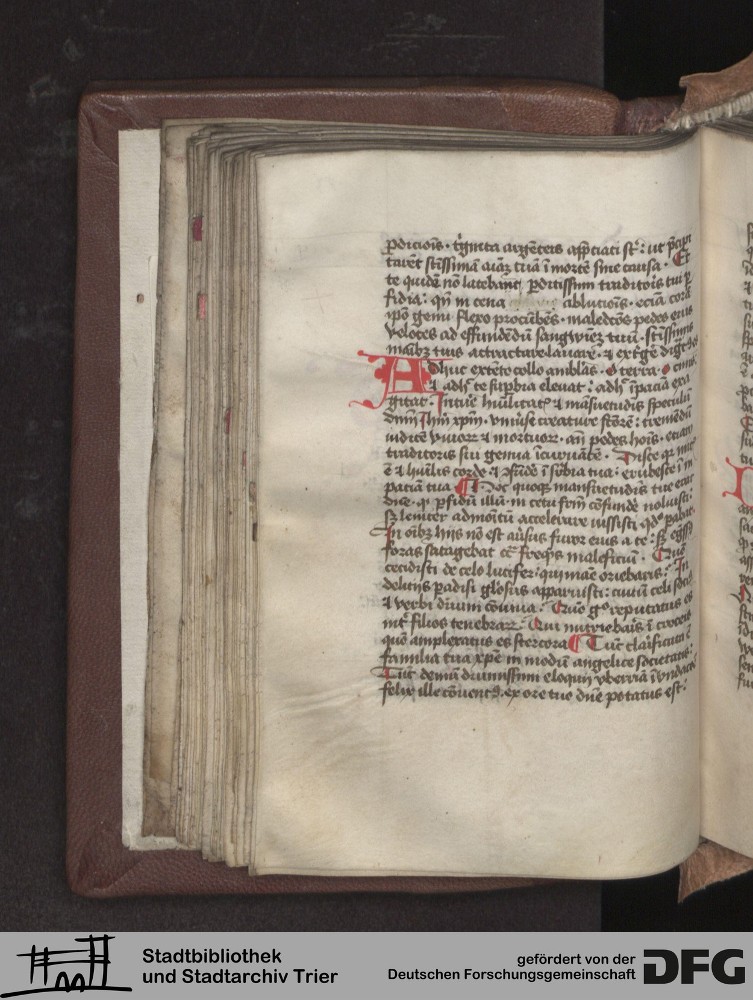 ꝑdicioīs · tͥginta argēteis app̄ciati st̄ : ut p̄cipi
tarēt sc̄issimā aīaꝫ tuā ī morte sine causa · Et
te quidē nō latebant ꝑditissimi traditoris tui ꝑ
fidia : qn̄ in cena ablucioīs · eciā corā
ip̄o genu flexo procūbēs · maledc̄os pedes eius
veloces ad effundēdū sanguīeꝫ tuū · sc̄issimis
maībꝫ tuis attractare lauare · ⁊ ext̄ge
Adhuc extēto collo ambĺas · o terra · o cinis ·
⁊ adh̓ te suꝑbia eleuat : adh̓ īpaciā exa
gitat · Intue hūilitat ⁊ māsuetudīs speculū
dn̄m Ih̄m xp̄m · vniuse creature
iudicē viuoꝝ ⁊ mortuoꝝ · an̄ pedes hoīs · eciam
traditoris sui genua īcuruātē · Disce qꝛ mitis
ē ⁊ hūilis corde ⁊ ꝯfūde ī suꝑbia tua : erubesce ī im
paciā tua ¶ Hoc quoqꝫ mansuetudīs tue erat
dn̄e · qꝛ ꝑfidū illū · in cetu frm̄ ꝯfunde noluisti ·
sꝫ leniter admoītū accelerare iussisti qd̓ pabat ·
In oībꝫ hijs nō est au̓sus furor eius a te : sꝫ egs̄s
foras satagebat malefiiciū · Quō
cecidisti de celo lucifer : qui mane oriebaris : In
delicijs padisi glōsus apparuisti : ciuiū celi
⁊ verbi diuini cōuiua · Quō gͦ reputatus es
int̓ filios tenebraꝝ · Qui nutriebaīs ī croceis
quō amplexatus es stercora ¶ Tūc clarificata ē
familia tua xp̄e in modū angelice societatis ·
Tūc demū diuinissimi eloquij
felix ille cōuentꝰ · ex ore tuo dn̄e potatus est ·
Stadtbibliothek
und Stadtarchiv Trier
gefördert von der
Deutschen Forschungsgemeinschaft
DFG